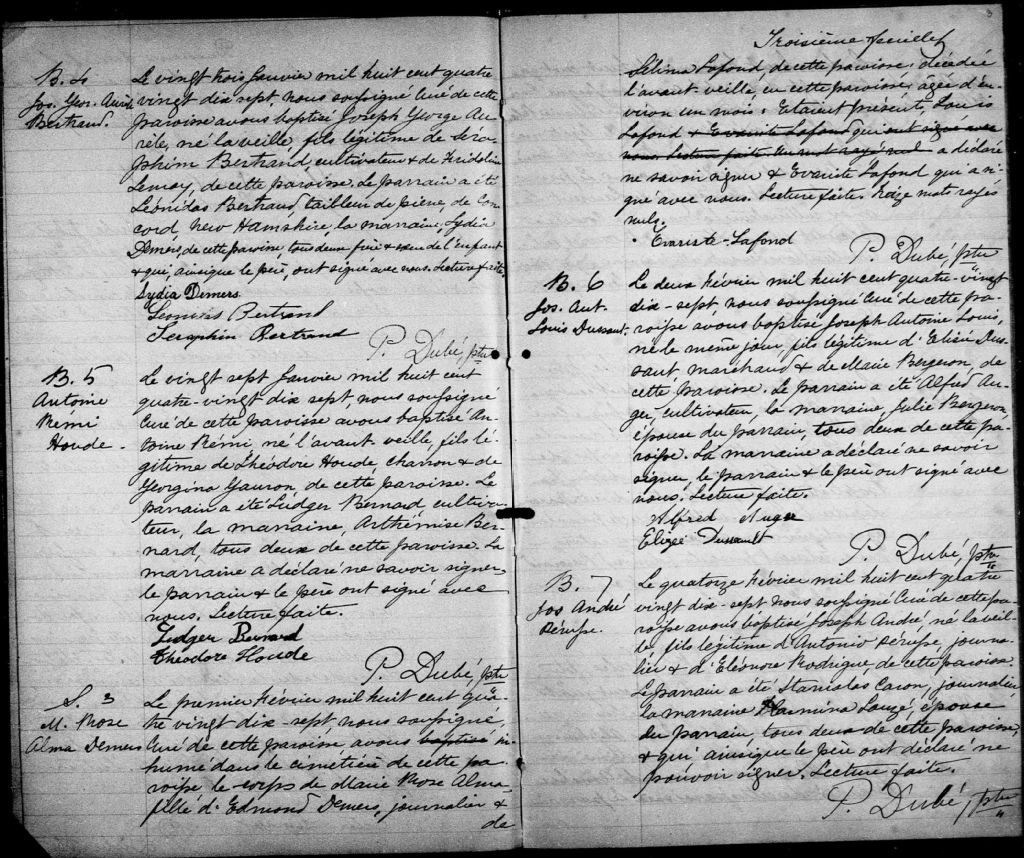 B. 4
Jos. Geo. Aurèle
Bertrand.
Le vingt trois Janvier mil huit cent quatre
vingt dix sept, nous soussigné Curé de cette
paroisse avons baptisé Joseph George Au
rèle, né la veille, fils légitime de Séra
phim Bertrand, cultivateur & de
Lemay, de cette paroisse. Le parrain a été
Léonidas Bertrand, tailleur de pierre, de Con
cord, New Hamshire, la marraine, Lydia
Demers, de cette paroisse, tous deux frère & sœur de l'Enfant
& qui, ainsi que le père, ont signé avec nous. Lecture faite.
Lydia Demers.
Leonidas Bertrand
Seraphin Bertrand
P. Dubé, ptre
B. 5
Antoine
Rémi
Houde.
Le vingt sept Janvier mil huit cent
quatre-vingt dix sept, nous soussigné
Curé de cette paroisse avons baptisé An
toine Rémi, né l'avant veille, fils lé
gitime de Théodore Houde, charron & de
Georgina Gauron de cette paroisse. Le
parrain a été Ludger Bernard, cultiva
teur, la marraine, Arthémise Ber
nard, tous deux de cette paroisse. La
marraine a déclaré ne savoir signer,
le parrain & le père ont signé avec
nous. Lecture faite.
Ludger Bernard
Théodore Houde
P. Dubé, ptre
S. 3
M. Rose
Alma Demers
Le premier Février mil huit cent qua
tre vingt dix-sept, nous soussigné,
Curé de cette paroisse, avons baptisé in
humé dans le cimetière de cette pa
roisse le corps de Marie Rose Alma
fille d'Edmond Demers, journalier &
de
3
Troisième feuillet
Lélima Lafond, de cette paroisse, décédée
l'avant veille, en cette paroisse, âgée d'en
viron un mois. Etaient présents, Louis
Lafond & Evariste Lafond qui ont signé avec
nous. Lecture faite. Un mot rayé nul a déclaré
ne savoir signer & Evariste Lafond qui a si
gné avec nous. Lecture faite. Seize mots rayés
nuls.
Evariste-Lafond
P. Dubé, ptre
B. 6
Jos. Ant.
Louis Dussaut.
Le deux Février mil huit cent quatre-vingt
dix-sept, nous soussigné Curé de cette pa
roisse avons baptisé Joseph Antoine Louis,
né le même jour, fils légitime d'Elisée Dus
saut marchand & de Marie Bergeron, de
cette paroisse. Le parrain a été Alfred Au
ger, cultivateur, la marraine, Julie Bergeron,
épouse du parrain, tous deux de cette pa
roisse. La marraine a déclaré ne savoir
signer, le parrain & le père ont signé avec
nous. Lecture faite.
Alfred Auger
Elizée Dussault
P. Dubé, ptre
B. 7
Jos André
Dérusse.
Le quatorze Février mil huit cent quatre
vingt dix-sept nous soussigné Curé de cette pa
roisse avons baptisé Joseph André, né la veil
le, fils légitime d'Antonio Dérusse, journa
lier & d'Eléonore Rodrigue de cette paroisse.
Le parrain a été Stanislas Caron, journalier,
la marraine Lauzé, épouse
du parrain, tous deux de cette paroisse,
& qui ainsi que le père ont déclaré ne
pouvoir signer. Lecture faite.
P. Dubé, ptre